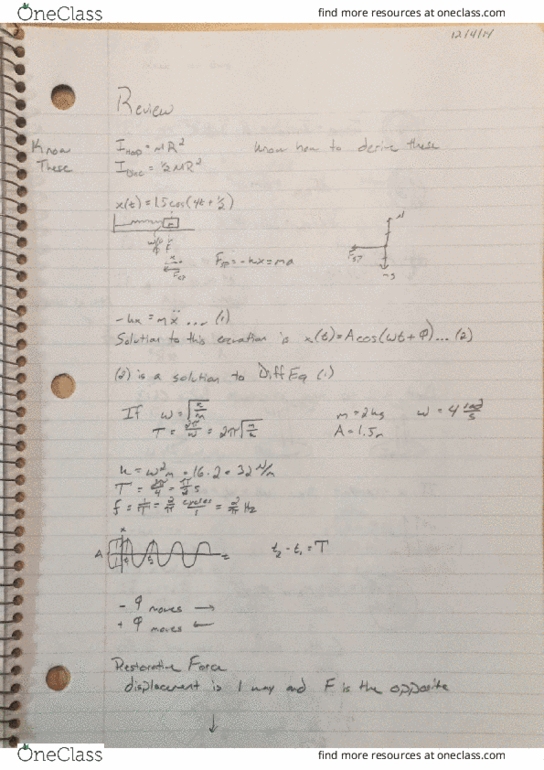 OneClass
find more resources at oneclass.com
12/4/14
Review
Know These
I_HOOP = MR²
know how to derive these
I_DISC = ½MR²
x(t) = 1.5cos(4t + ½)
N
F_SP = -kx = ma
F_SP
mg
-kx = mẍ ... (1)
Solution to this equation is x(t) = Acos(ωt + φ)... (2)
(2) is a solution to Diff Eq (1)
If ω = √(k/m)
m = 2kg
ω = 4 rad/s
T = 2π/ω = 2π√(m/k)
A = 1.5m
k = ω²m = 16·2 = 32 N/m
T = 2π/4 = π/2 s
f = 1/T = 2/π cycles/1 = 2/π Hz
x
A
t
t₂ - t₁ = T
- φ moves →
+ φ moves ←
Restorative Force
displacement is 1 way and F is the opposite
↓
OneClass
find more resources at oneclass.com